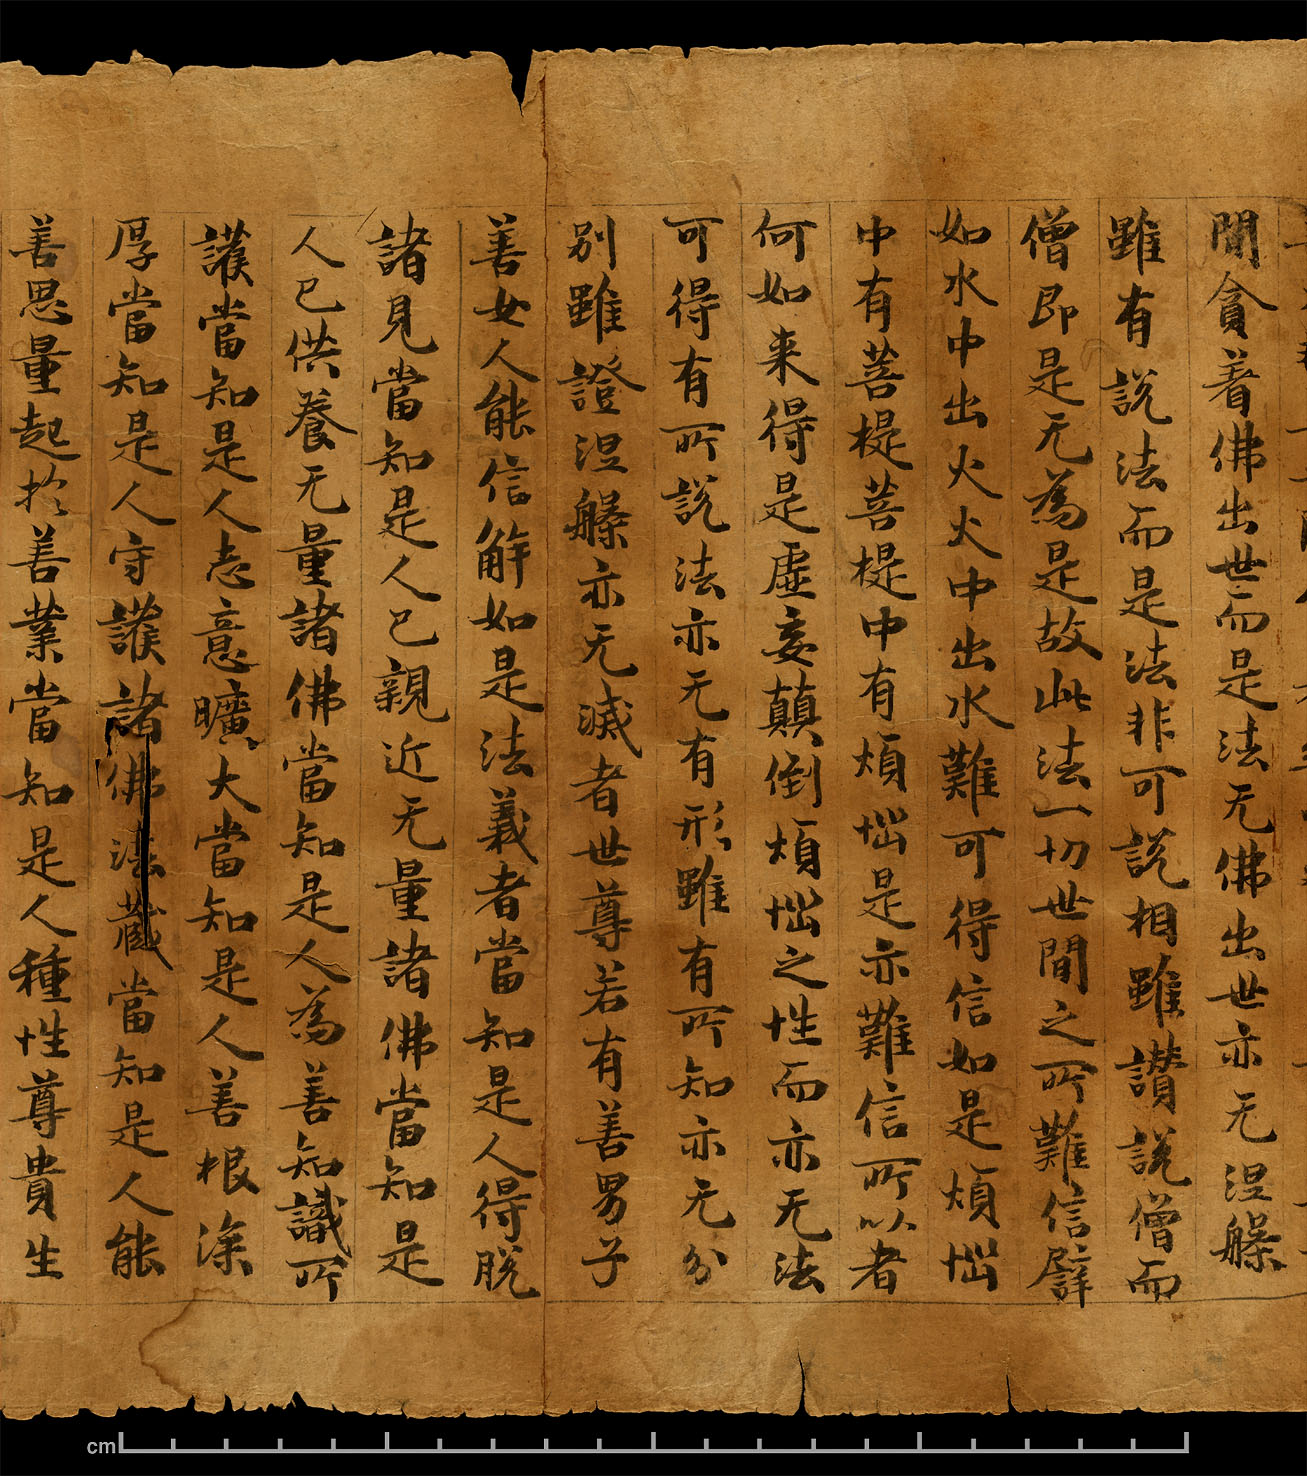 間貪著佛出世而是法无佛出世亦无涅槃
雖有說法而是法非可說相雖讃說僧而
僧即是无為是故此法一切世間之所難信譬
如水中出火火中出水難可得信如是煩惱
中有菩提菩提中有煩惱是亦難信所以者
何如来得是虛妄顛倒煩惱之性而亦无法
可得有所說法亦无有形雖有所知亦无分
別雖證涅槃亦无滅者世尊若有善男子
善女人能信解如是法義者當知是人得脫
諸見當知是人已親近无量諸佛當知是
人已供養无量諸佛當知是人為善知識所
護當知是人志意曠大當知是人善根深
厚當知是人守護諸佛法藏當知是人能
善思量起於善業當知是人種性尊貴生